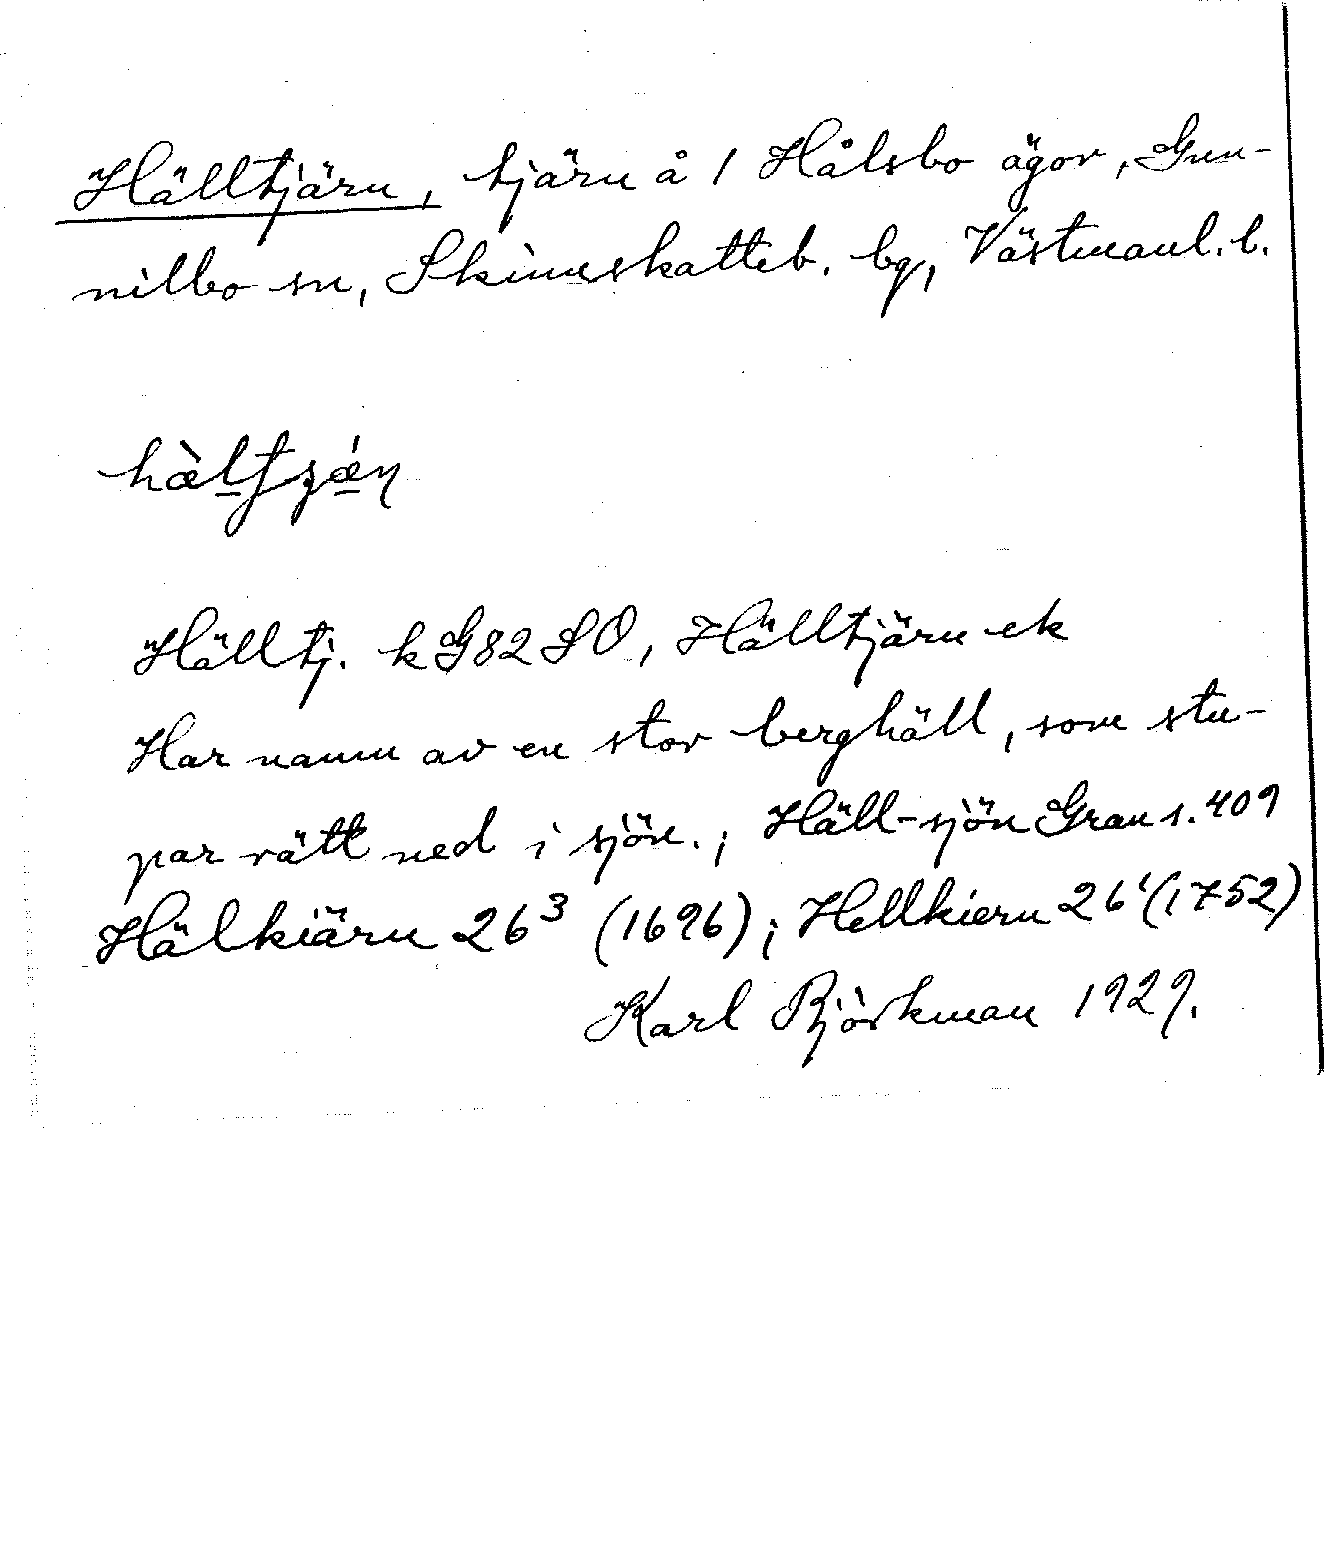 Hälltjärn, tjärn å 1 Hålsbo ägor, Gun-
nilbo sn, Skinnskatteb. bg, Västmanl. l.
Hälltj. k G82SO, Hälltjärn ek
Har namn av en stor berghäll, som stu-
par rätt ned i sjön.; Häll-sjön Grau s. 409
Hälkiärn 26³ (1696); Hellkiern 26¹ (1752)
Karl Björkman 1929.